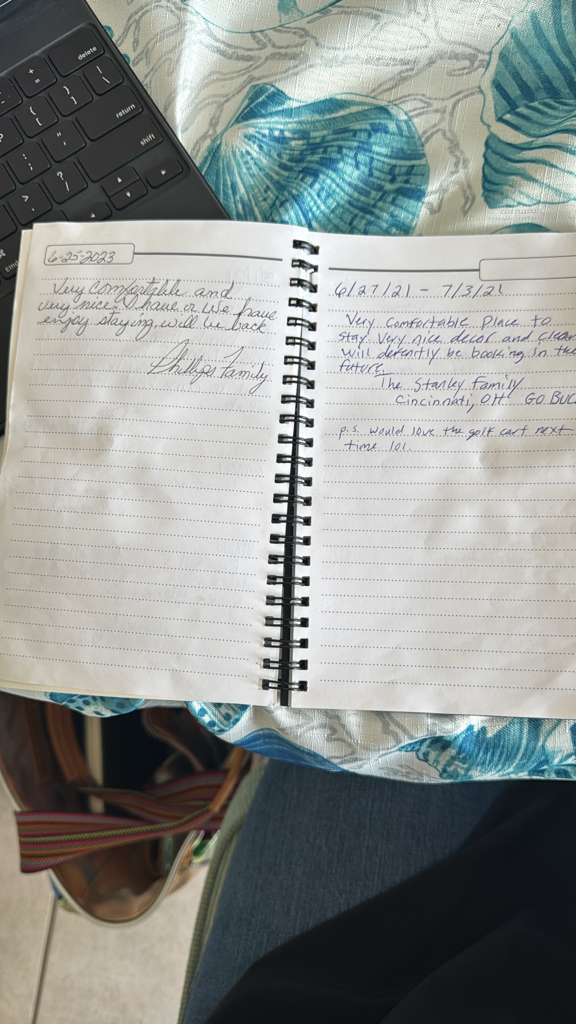 delete
return
shift
6-25-2023
Very comfortable and
very nice. I have or We have
enjoy staying, will be back
Phillips Family
6/27/21 - 7/3/21
Very comfortable place to
stay very nice decor and clean
will defently be booking in the
future.
The Stanley Family
Cincinnati, OH GO BUC
p.s. would love the golf cart next
time lol.